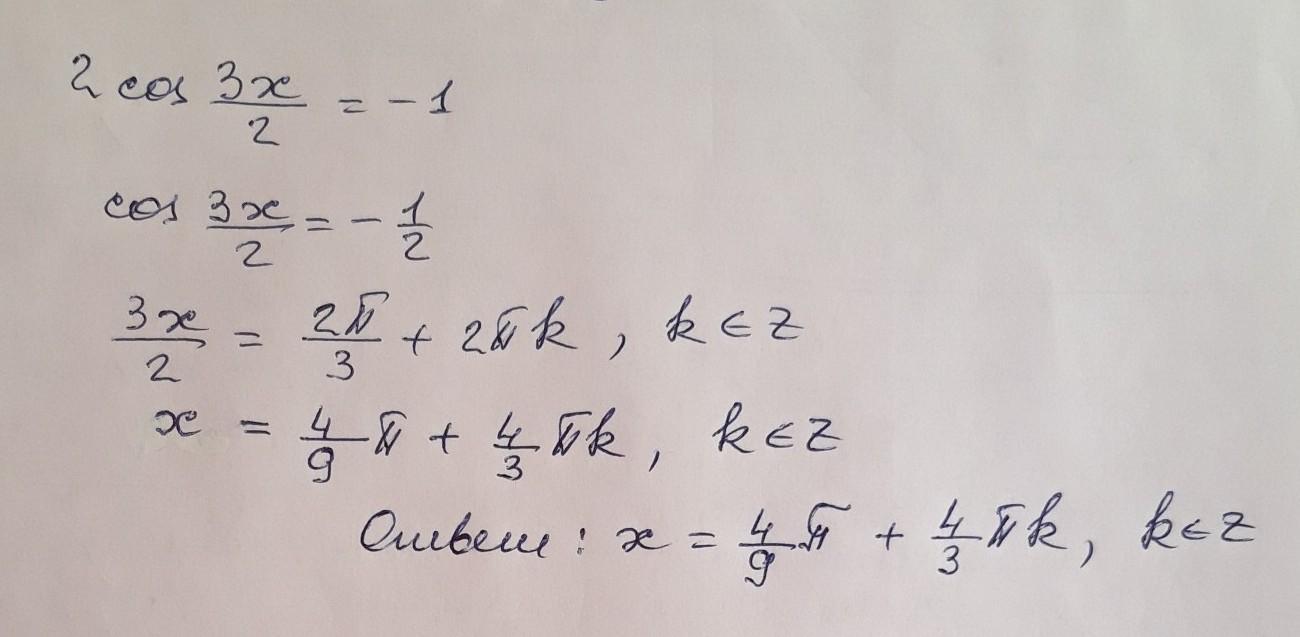 2 cos 3x/2 = -1
cos 3x/2 = - 1/2
3x/2 = 2π/3 + 2πk, k ∈ z
x = 4/9 π + 4/3 πk, k ∈ z
Ответ: x = 4/9 π + 4/3 πk, k ∈ z